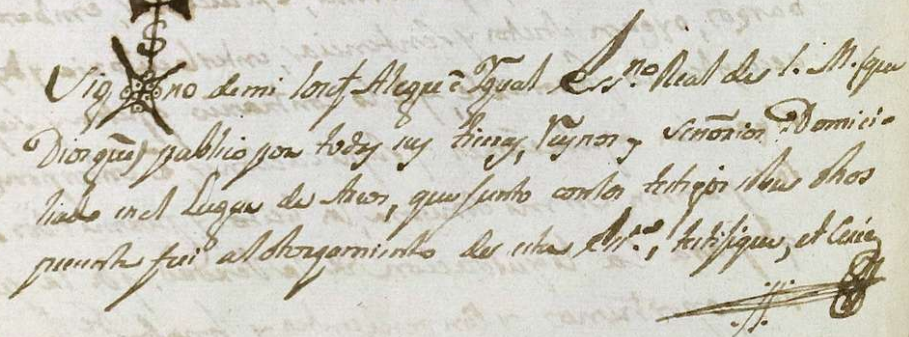 Sig no de mi Josef Alegre Ygual Ess.no Real de S. M. (que
Dios gũe) publico por todas sus tierras, Reynos y Señorios Domici-
liado en el Lugar de que junto con los testigos dhos
presente fui al otorgamiento de esta Ess.ra, testifique, et Cerre